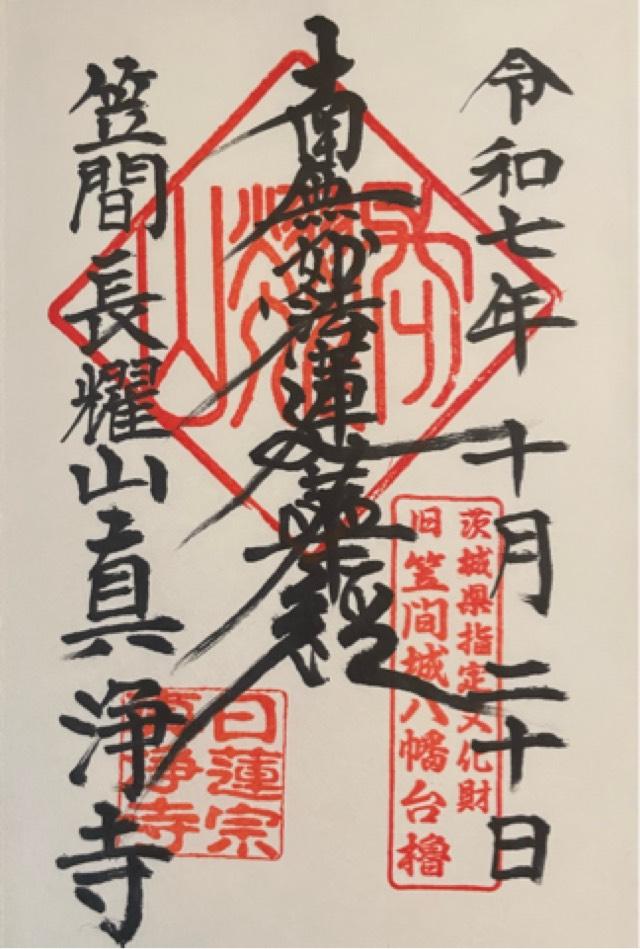 令和七年 十月二十日
茨城県指定文化財
旧笠間城八幡台櫓
南無妙法蓮華経
長耀山
日蓮宗
真浄寺
笠間 長耀山 真浄寺